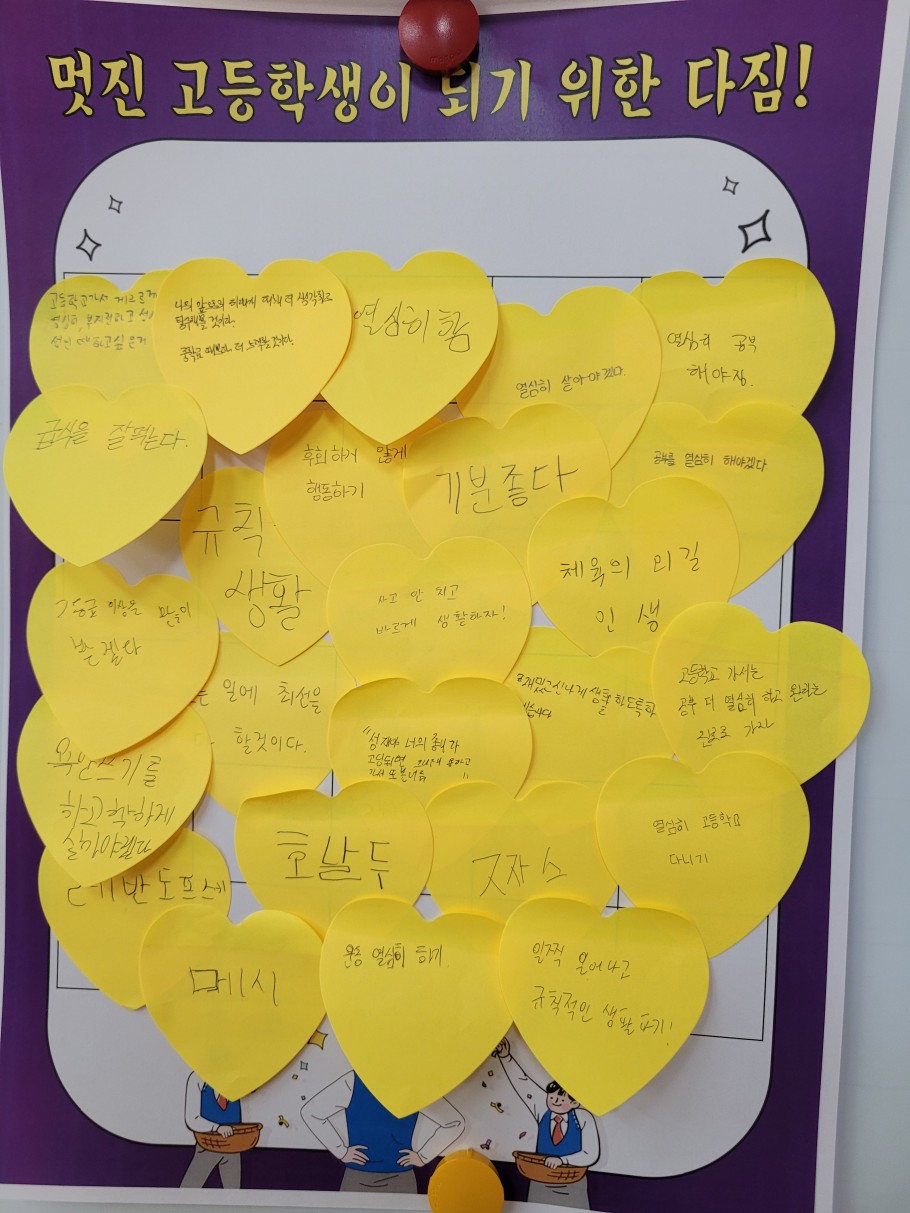 멋진 고등학생이 되기 위한 다짐!
고등학교가서 게으르게
열심히, 부지런하고
나의 앞으로의 미래에 대해 더 생각하고
중학교 때보다 더 노력할 것이다.
열심히 함
열심히 살아야겠다.
열심히 공부
해야징.
급식을 잘먹는다.
후회하지 않게
행동하기
기분좋다
공부를 열심히 해야겠다
규칙
생활
체육의 외길
인생
사고 안 치고
바르게 생활하자!
2등급 이상을 많이
받겠다
일에 최선을
할것이다.
재밌고 신나게 생활하도록 하
겠습니다
고등학교 가서는
공부 더 열심히 하고 원하는
진로로 가자
너의
고딩되면
가서
욕 안쓰기를
하고 착하게
살아야겠다
호날두
ㅈ자스
열심히 고등학교
다니기
반도프세
메시
운동 열심히 하기.
일찍 일어나고
규칙적인 생활 하기!